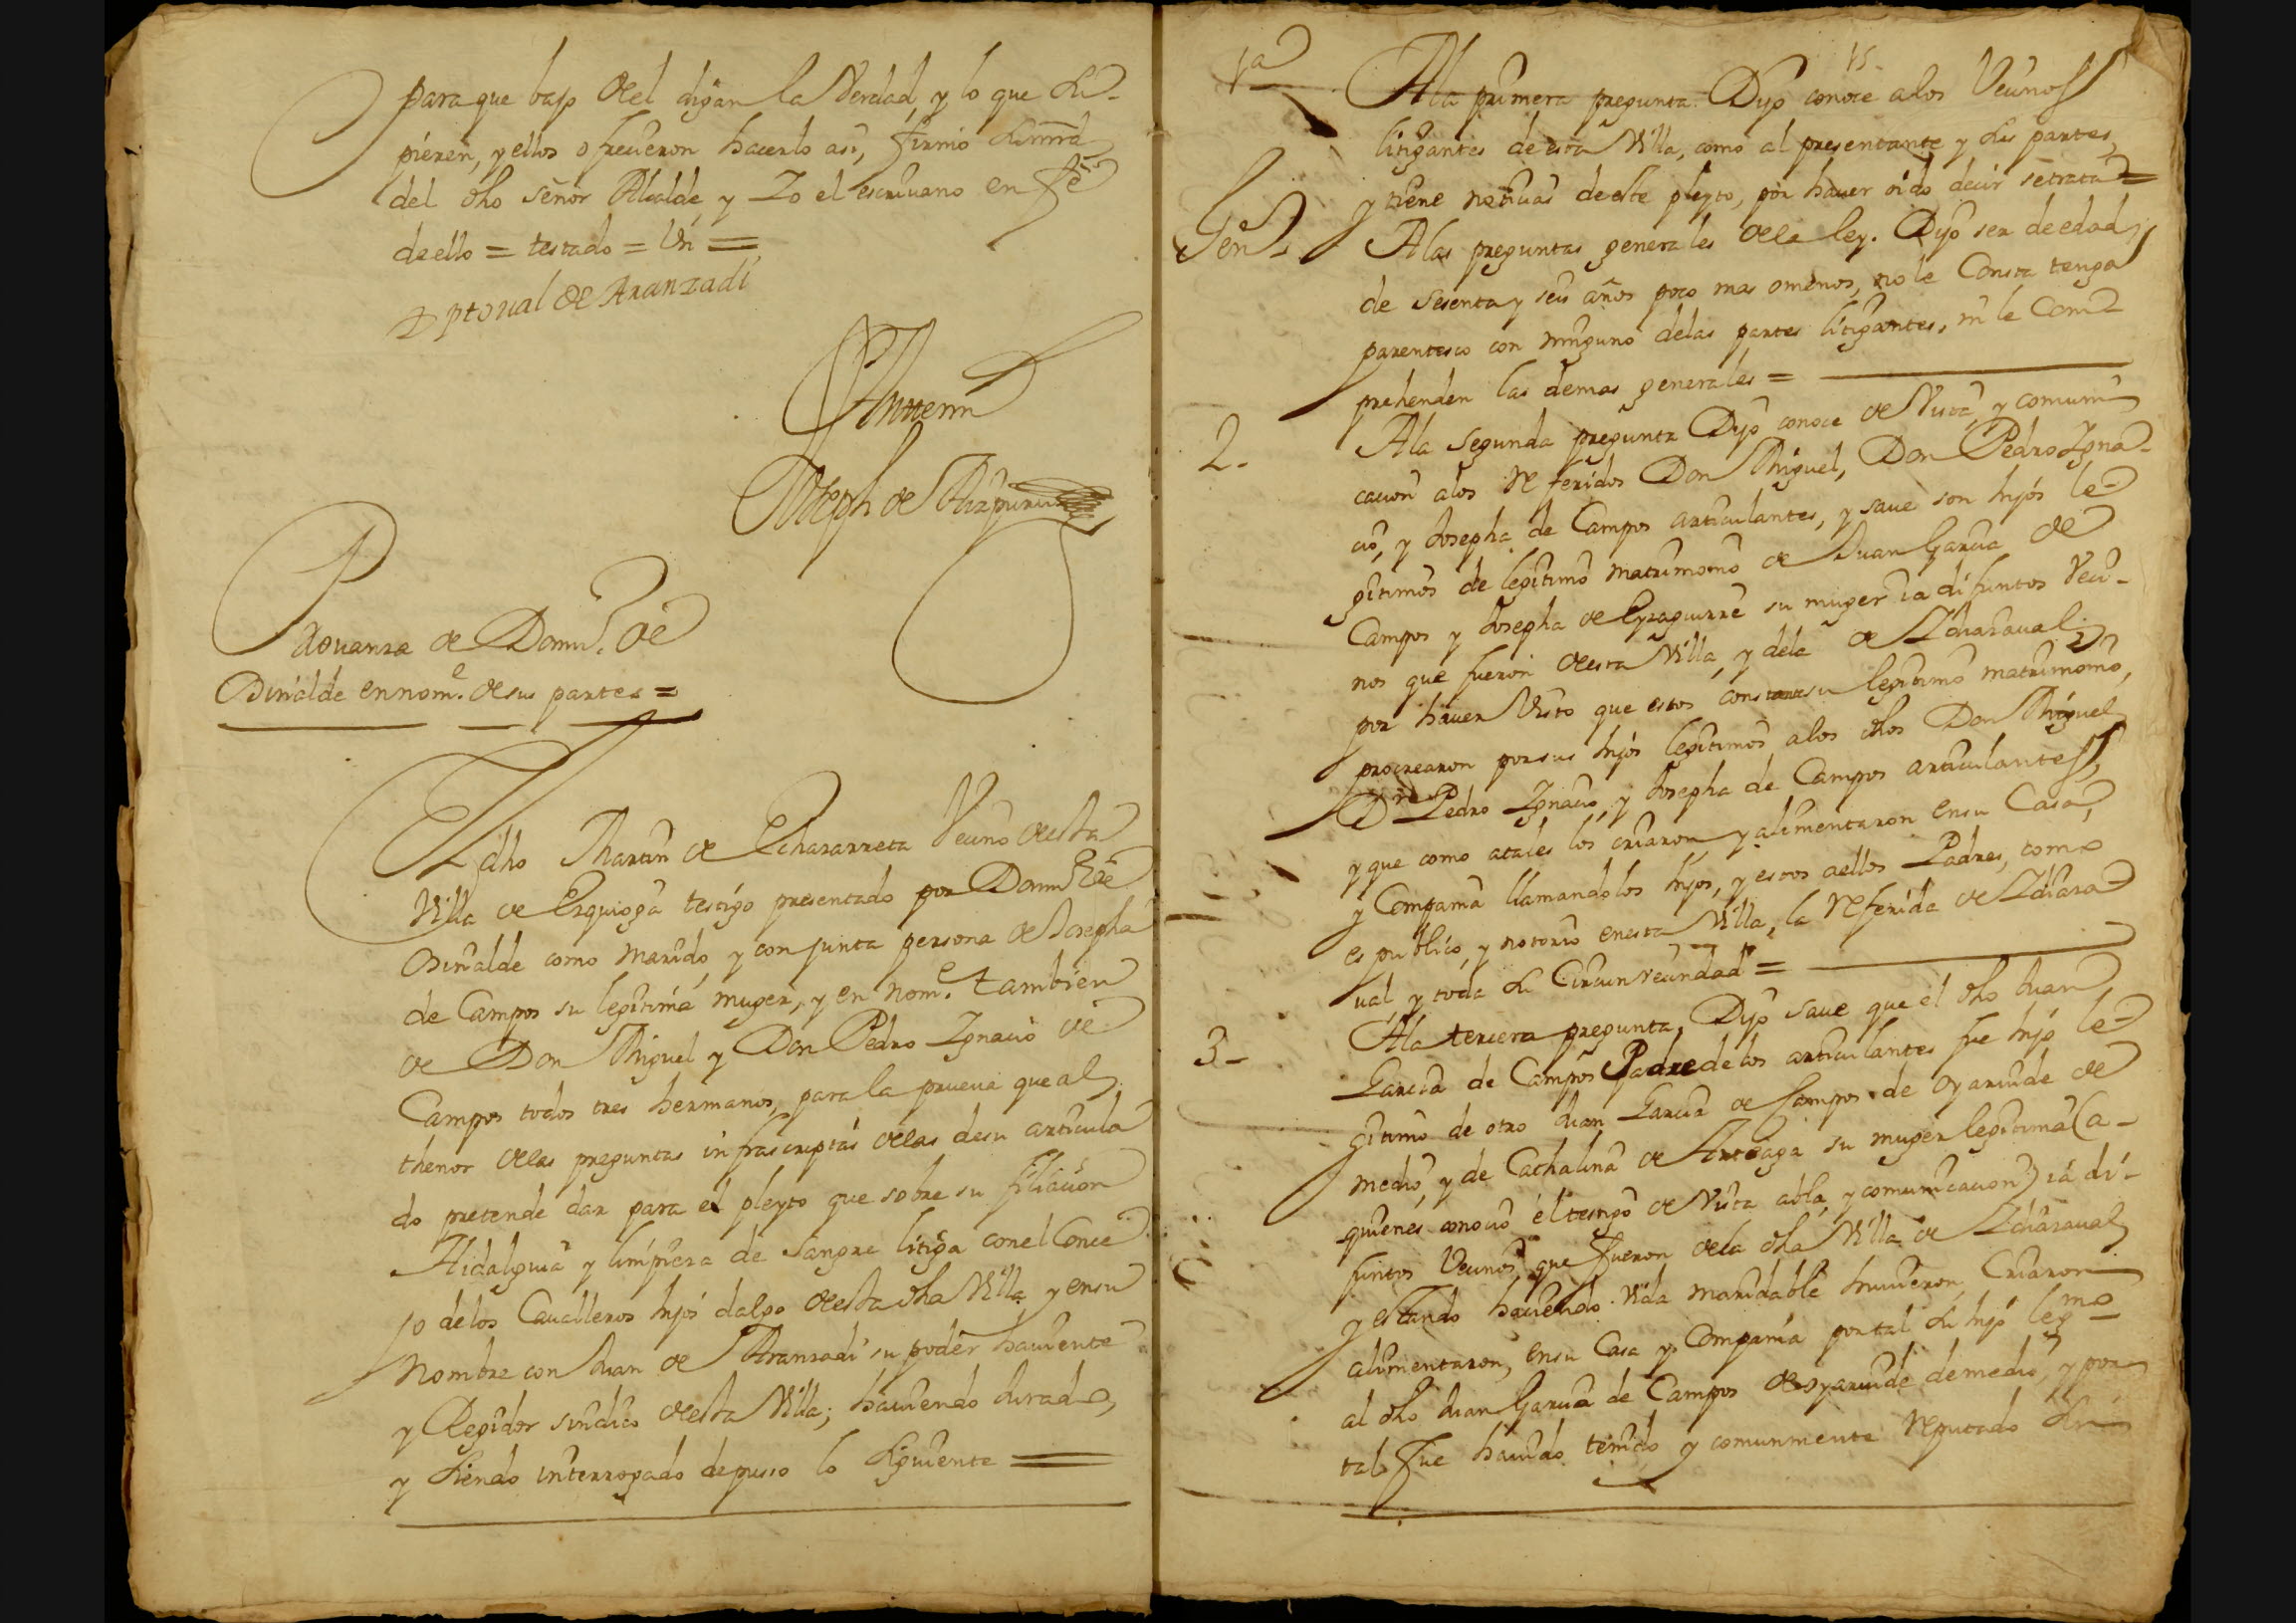 para que bajo de el digan la Verdad, y lo que su-
pieren, y ellos ofrecieron hacerlo asi, firmó su mrd
del dho señor Alcalde, y Yo el escriuano en fe
de ello = testado = Un =
Xptoual de Aranzadi
Anttemi
Joseph de Aizpuru
Prouanza de Domin.º de
Osinalde en nom.e de sus partes =
El dho Martin de Echazarreta Vecino de esta
Villa de Ezquioga testigo presentado por Domingo de
Osinalde como marido, y conjunta persona de Josepha
de Campos su legitima muger, y en nom.e tambien
de Don Miguel y Don Pedro Ygnacio de
Campos todos tres hermanos, para la prueua que al
thenor de las preguntas infrascriptas de las de su articula
do pretende dar para el pleyto que sobre su filiacion
Hidalguia y limpieza de sangre litiga con el Conce
jo de los Caualleros hijos dalgo de esta dha Villa y en su
nombre con Juan de Aranzadi su poder hauiente
y Regidor sindico de esta Villa; hauiendo jurado,
y siendo interrogado depuso lo siguiente =
15
1a A la primera pregunta Dijo conoce a los Vecinos
litigantes de esta Villa, como al presentante y sus partes,
y tiene noticias de este pleyto, por hauer oido decir se trata =
Gen.s A las preguntas generales de la ley. Dijo ser de edad
de sesenta y seis años poco mas o menos, no le Consta tenga
parentesco con ninguno de las partes litigantes, ni le Com-
prehenden las demas generales =
2. A la segunda pregunta Dijo conoce de Vista, y comuni
cacion a los referidos Don Miguel, Don Pedro Ygna-
cio, y Josepha de Campos articulantes, y saue son hijos le-
gitimos de legitimo matrimonio de Juan Garcia de
Campos y Josepha de Eyzaguirre su muger ia difuntos Veci-
nos que fueron de esta Villa, y de la de Ychasaual;
por hauer Visto que estos constante su legitimo matrimonio,
procrearon por sus hijos legitimos a los dhos Don Miguel
Dn Pedro Ygnacio, y Josepha de Campos articulantes,
y que como a tales los criaron y alimentaron en su Casa,
y Compania llamandolos hijos, y estos a ellos Padres, como
es publico, y notorio en esta Villa, la referida de Ychasa
ual, y toda su Circunvecindad =
3- A la tercera pregunta, Dijo saue que el dho Juan
Garcia de Campos Padre de los articulantes fue hijo le-
gitimo de otro Juan Garcia de Campos de Oyaruide de
medio, y de Cathalina de Arteaga su muger legitima (a-
quienes conocio el testigo de Vista abla, y comunicacion) ia di-
funtos Vecinos que fueron de la dha Villa de Ychasaual
y estando haciendo Vida maridable huuieron, Criaron
alimentaron, en su Casa y Compania por tal su hijo legmo
al dho Juan Garcia de Campos de Oyaruide de medio, y por
tal fue hauido tenido y comunmente reputado sin